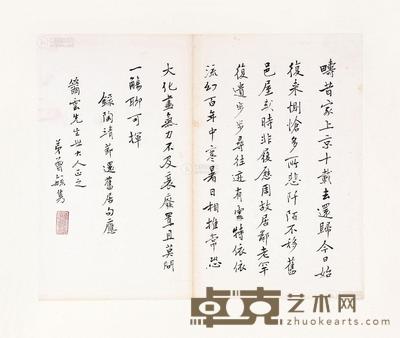 疇昔家上京十載去還歸今日始
復来惻愴多所悲阡陌不移舊
邑屋或時非履歷周故居鄰老罕
復遺步步尋往迹有處特依依
流幻百年中寒暑日相推常恐
大化盡氣力不及衰廢置且莫
一觴聊可揮
錄陶清節還舊居句應
先生世大人正之
弟曾毓雋
卓克艺术网
zhuokearts.com